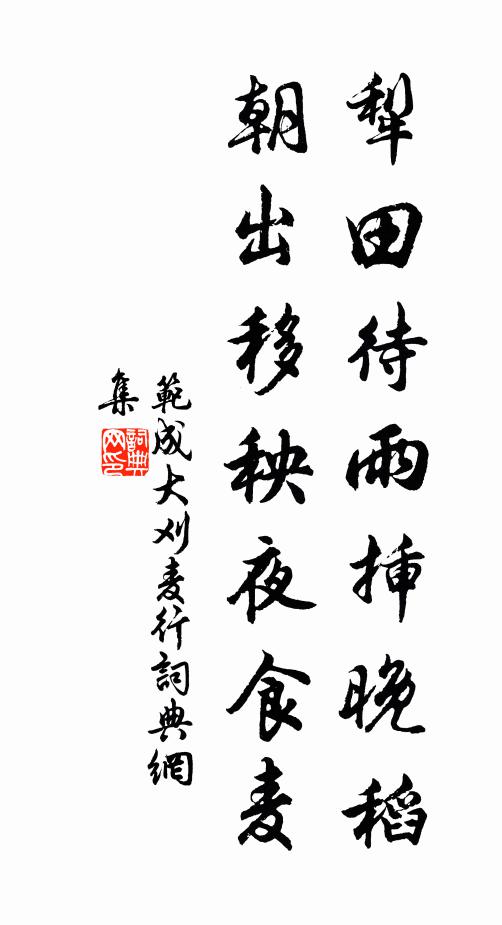 犁田待雨插晚稻
朝出移秧夜食麦
範成大刈麦行詞典網
集
詞典网印